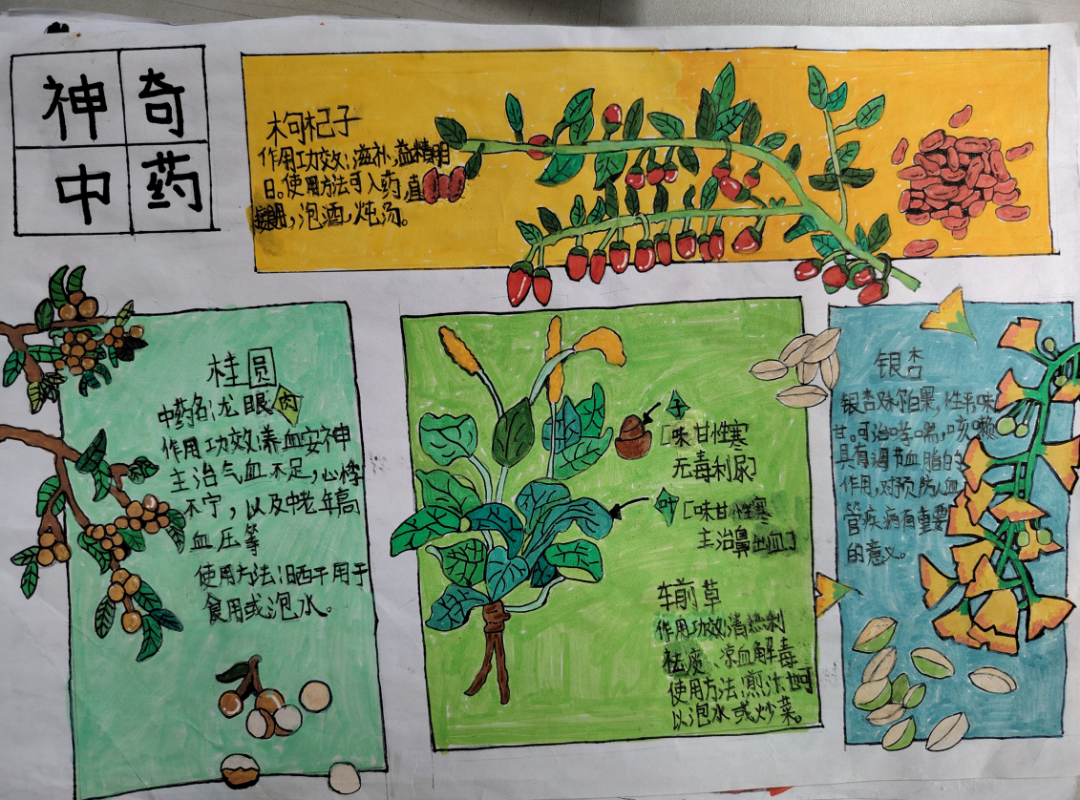 神奇
中药
枸杞子
作用功效：滋补，益精明
目。使用方法可入药，直
接嚼，泡酒，炖汤。
桂圆
中药名：龙眼肉
作用功效：养血安神
主治气血不足，心悸
不宁，以及中老年高
血压等
使用方法：晒干用于
食用或泡水。
子
[味甘性寒
无毒利尿]
叶
[味甘性寒
主治鼻出血]
车前草
作用功效：清热利
祛痰、凉血解毒
使用方法：煎汁也可
以泡水或炒菜。
银杏
银杏 白果，性平味
甘。可治哮喘，咳嗽
具有调节血脂的
作用，对预防心血
管疾病有重要
的意义。